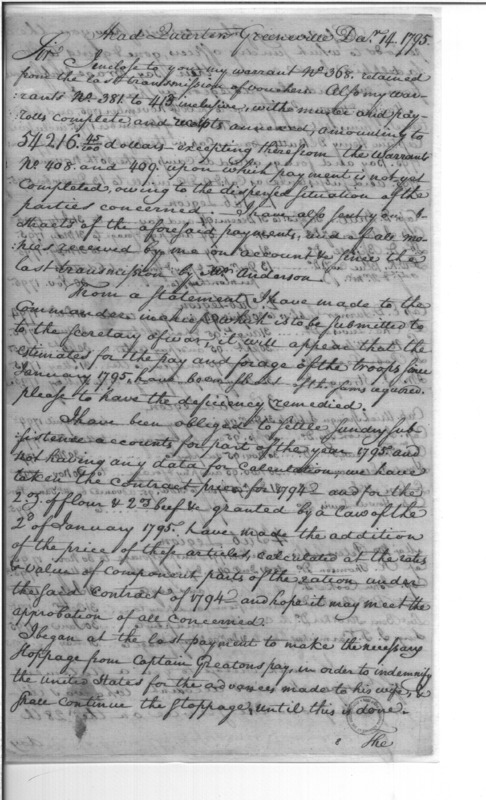 Head Quarters Greeneville Dar. 14. 1795.
Sir,
I enclose to you my warrant No 368. retained
from the last transmission of vouchers. Also my war-
rants No 381. to 413 inclusive, with muster and pay-
rolls complete, and receipts annexed, amounting to
54216. 45/100 dollars excepting therefrom the Warrants
No 408. and 409. upon which payment is not yet
completed, owing to the dispersed situation of the
parties concerned. I have also sent you ab-
stracts of the aforesaid payments, and of all mo-
nies received by me on account &c since the
last transmission by Mr. Anderson.
From a statement I have made to the
Commander in chief which is to be submitted to
to the Secretary of war, it will appear that the
estimates for the pay and forage of the troops since
January 1795. have been short of the sums required.
please to have the deficiency remedied.
I have been obliged to settle sundry sub-
sistence accounts for part of the year 1795 and
not having any data for calculation, we have
taken the contract price for 1794 and for the
2 oz of flour & 2 oz beef &c granted by a law of the
2d of January 1795. have made the addition
of the price of these articles, calculated at the rates
& value of component parts of the ration under
the said contract of 1794 and hope it may meet the
approbation of all concerned.
I began at the last payment to make the necessary
stoppage from Captain Greatons pay, in order to indemnify
the United States for the advances made to his wife, &
shall continue the stoppage, until this is done.
The